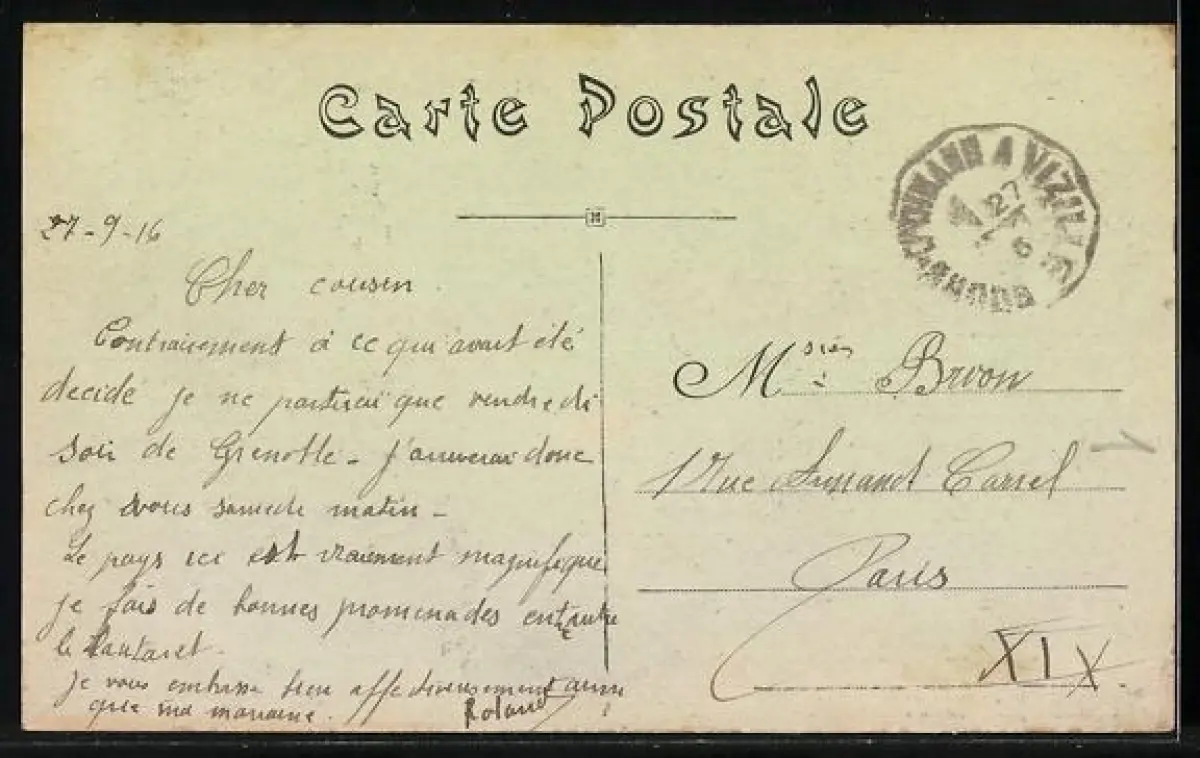 Carte Postale
27-9-16
Cher cousin.
Contrairement à ce qui avait été
decidé je ne partirai que vendredi
soir de Grenoble - J'arriverai donc
chez vous samedi matin -
Le pays ici est vraiment magnifique
je fais de bonnes promenades entr'autre
le Lautaret.
Je vous embrasse bien affectueusement ainsi
que ma marraine. Roland
M
Brvon
17 rue Armand Carrel
Paris
XIX
A VIZILLE
27